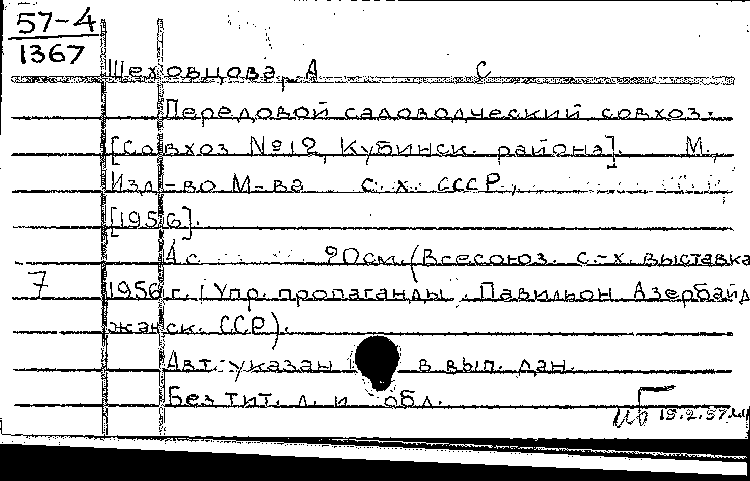 57-4
1367
Шеховцова, А С
Передовой садоводческий совхоз.
[Совхоз №12, Кубинск. района]. М.,
Изд-во М-ва с. х. СССР,
[1956].
4 с 20см. (Всесоюз. с-х. выставка
7 1956 г. (Упр. пропаганды. Павильон Азербайд
жанск. ССР).
Авт. указан в вып. дан.
Без тит. л. и обл.
19.2.57